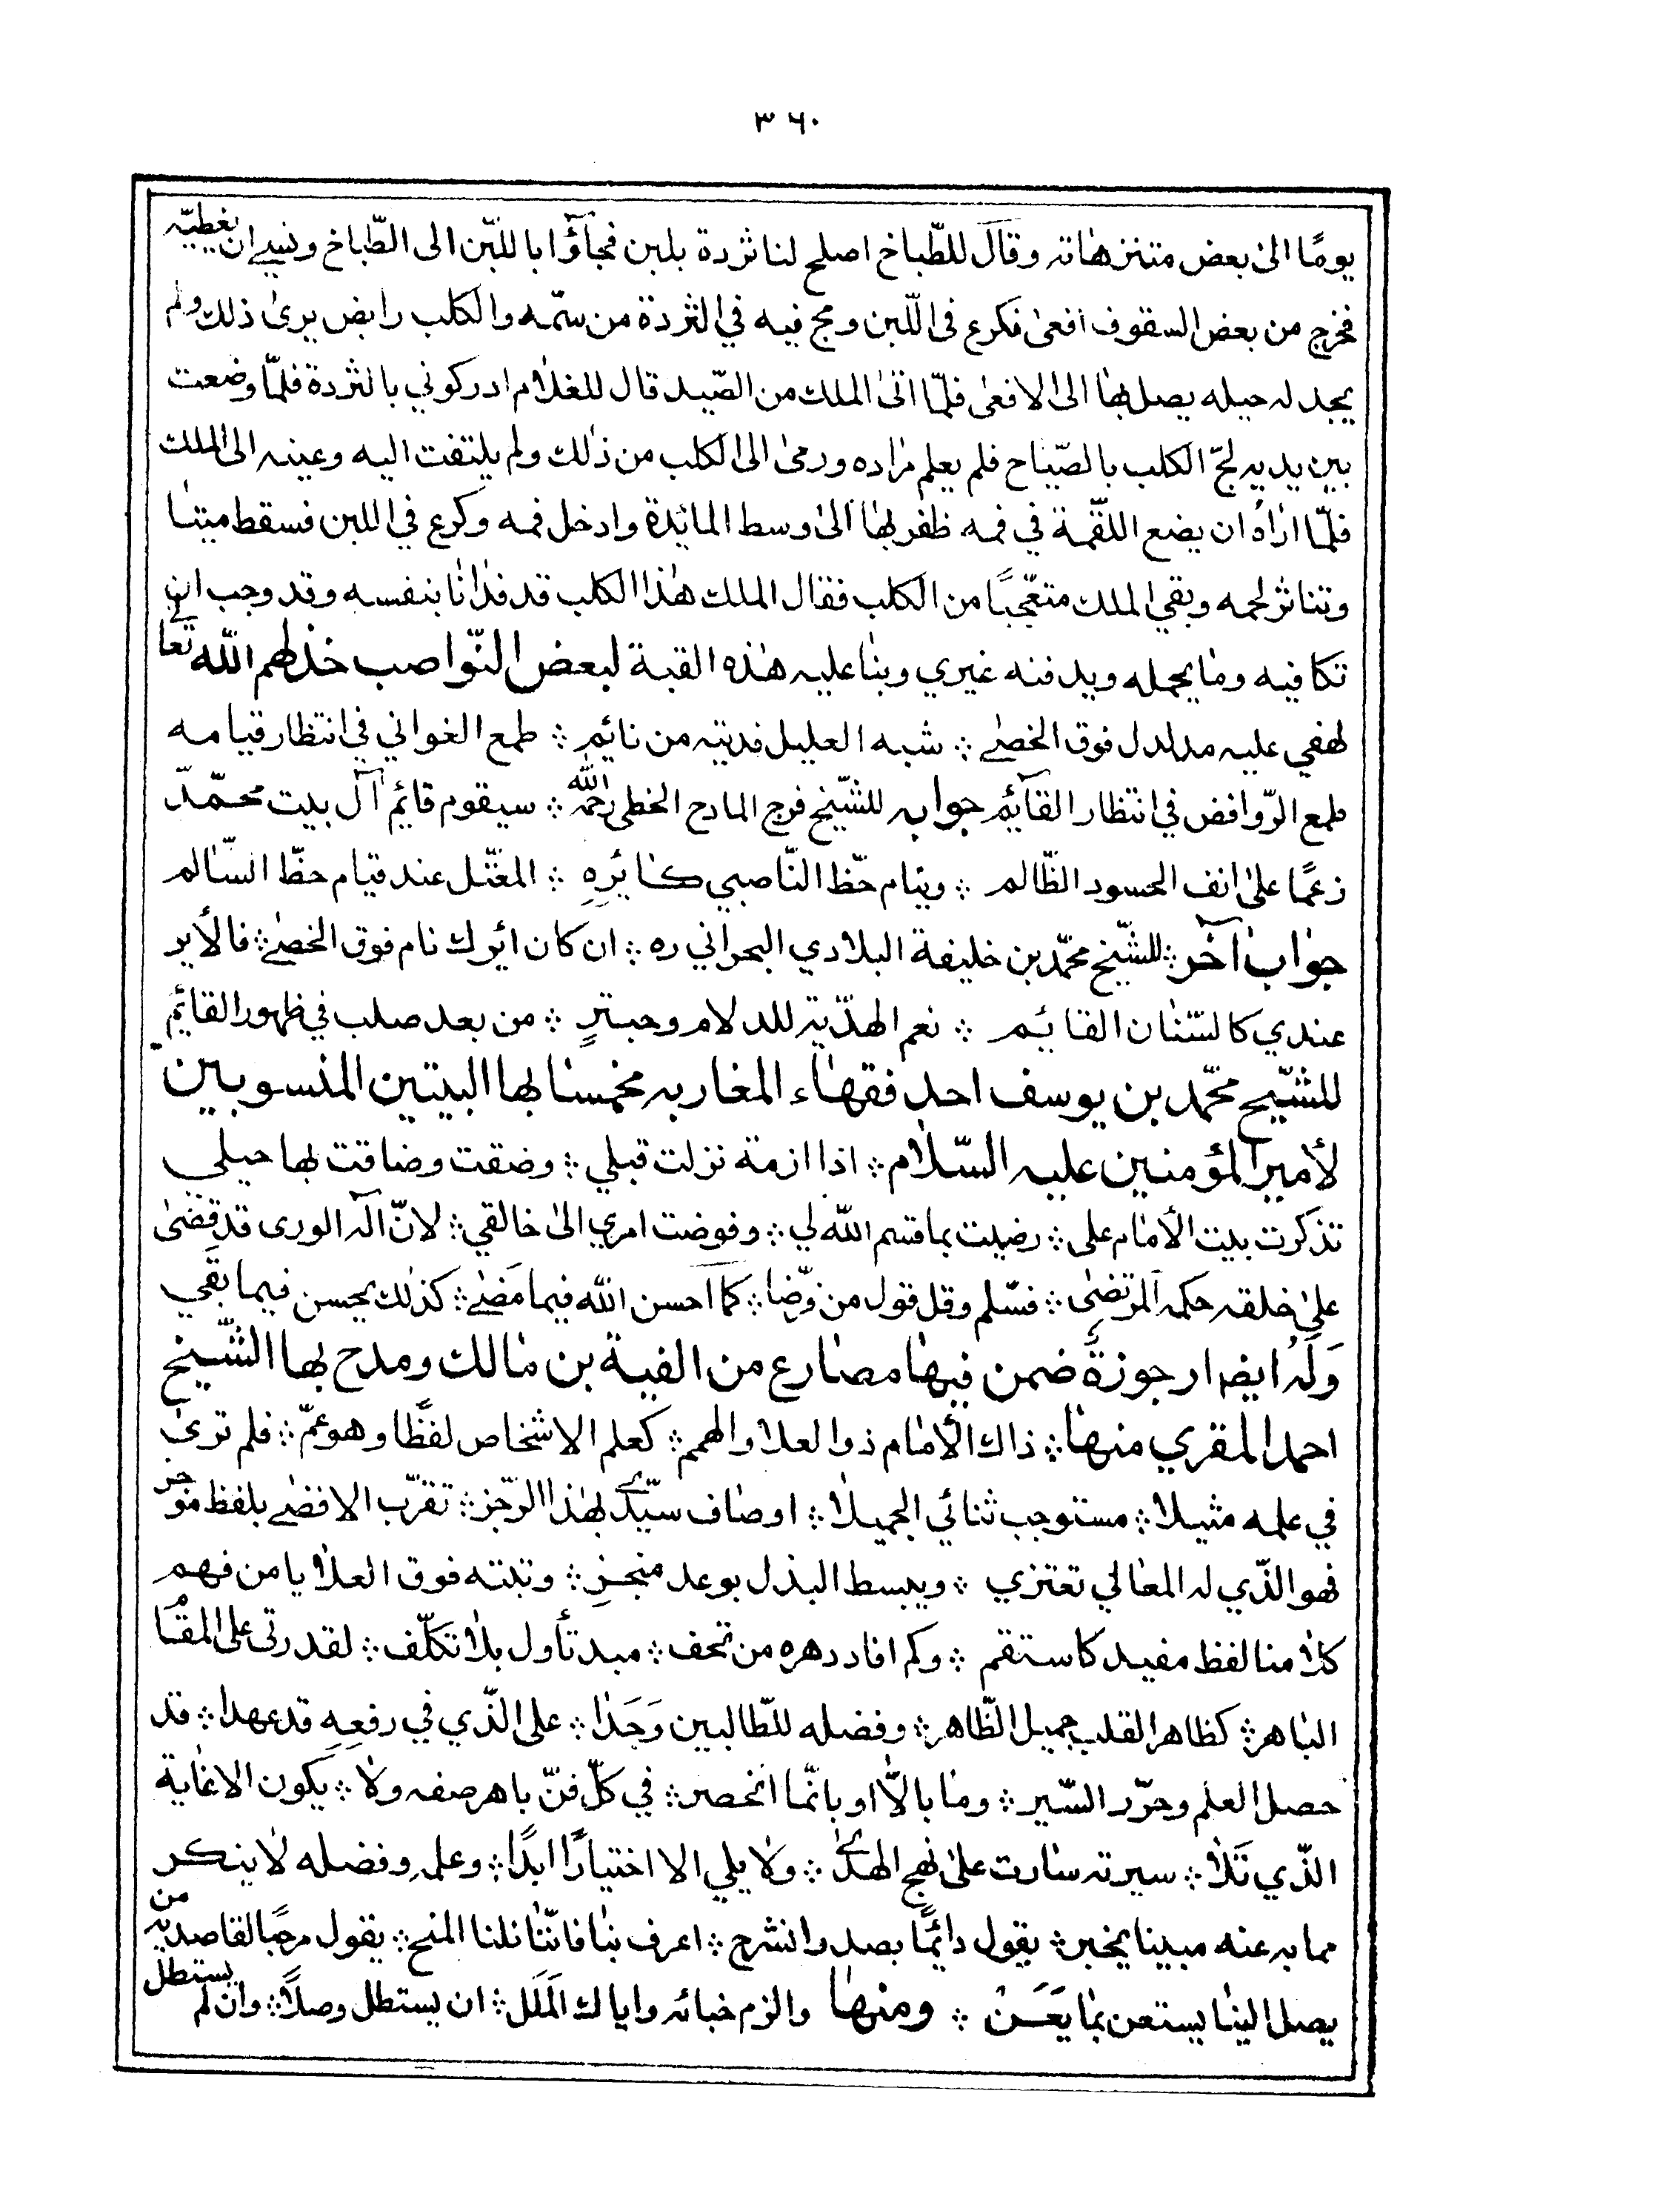 ٣٦٠
يومًا الى بعض متنزهاته وقال للطّباخ اصلح لنا ثردة بلبن فجاؤا باللّبن الى الطّباخ ونسي ان يغطيّه
فخرج من بعض السقوف افعى فكرع فى اللّبن ومج فيه في الثردة من سمّه والكلب رابض يرى ذلك ولم
يجد له حيله يصل بها الى الافعى فلمّا اتى الملك من الصّيد قال للغلام ادركوني بالثردة فلمّا وضعت
بين يديه لجّ الكلب بالصّياح فلم يعلم مراده ورمى الى الكلب من ذلك ولم يلتفت اليه وعينه الى الملك
فلمّا اراد ان يضع اللقّمة في فمه ظفر بها الى وسط المائدة وادخل فمه وكرع في اللبن فسقط ميتا
وتناثر لحمه وبقي الملك متعّجبًا من الكلب فقال الملك هذا الكلب قد فدانا بنفسه وقد وجب ان
تكافيه وما يحمله ويدفنه غيري وبنا عليه هذه القبة لبعض النّواصب خذلهم الله تعالى
لهفي عليه مدلدل فوق الخصي ؞ شبه العليل فديته من نائم ؞ طمع الغواني في انتظار قيامه
طمع الرّوافض في انتظار القآئم جوابه للشّيخ فرج المادح الخطى رحمه الله ؞ سيقوم قايم آل بيت محمّد
زعمًا على انف الحسود الظّالم ؞ وينام حظّ النّاصبي كايره ؞ المغتّل عند قيام حظّ السّالم
جواب آخر ؞ للشّيخ محمّد بن خليفة البلادي البحراني ره ؞ ان كان ايرك نام فوق الخصي ؞ فالأير
عندي كالسّنان القائم ؞ نعم الهدّية للدلام وحبترٍ ؞ من بعد صلب في ظهور القائم
للشّيخ محمّد بن يوسف احد فقهاء المغاربه مخمسا بها البيتين المنسوبين
لأمير المؤمنين عليه السّلام ؞ اذا ازمة نزلت قبلي ؞ وضقت وضاقت بها حيلي
تذكرت بيت الأمام علي ؞ رضيت بما قسم الله لي ؞ وفوضت امري الى خالقي ؞ لانّ اله الورى قد قضى
على خلقه حكمه المرتضى ؞ فسّلم وقل قول من فوّضا ؞ كما احسن الله فيما مضى ؞ كذلك يحسن فيما بقي
وله ايضا ارجوزة ضمن فيها مصارع من الفية بن مالك ومدح بها الشّيخ
احمد المقري منها ؞ ذاك الأمام ذو العلا والهمم ؞ كعلم الاشخاص لفظًا وهو عمّ ؞ فلم ترى
في علمه مثيلا ؞ مستوجب ثنائي الجميلا ؞ اوصاف سيّدي بهذا الرّجز ؞ تقرّب الاقصى بلفظ موجز
فهو الذّي له المعالي تعتزي ؞ ويبسط البذل بوعد منجزِ ؞ وتبته فوق العلا يا من فهم
كلامنا لفظ مفيد كاستقم ؞ وكم افاد دهره من تحف ؞ مبد تأول بلا تكلّف ؞ لقد رقى على المقا
الباهر ؞ كظاهر القلب جميل الظّاهر ؞ وفضله للطّالبين وَجَدا ؞ على الذّي في رفعه قد عهدا ؞ قد
حصل العلم وحرّر السّير ؞ وما بالاّ او بانّما انحصر ؞ في كلّ فنّ باهر صفه ولا ؞ يكون الا غاية
الذّي تَلا ؞ سيرته سارت على نهج الهدى ؞ ولا يلي الا اختيارًا ابدًا ؞ وعلمه وفضله لا ينكر
مما به عنه مبينا يخبر ؞ يقول دائمًا بصدر انشرح ؞ اعرف بنا فانّنا نلنا المنح ؞ يقول مرحبًا لقاصديه من
يصل الينا يستعن بنا يَعَن ؞ ومنها والزم خبائه واياك المَلَل ؞ ان يستطل وصلاً ؞ وان لم يستطل